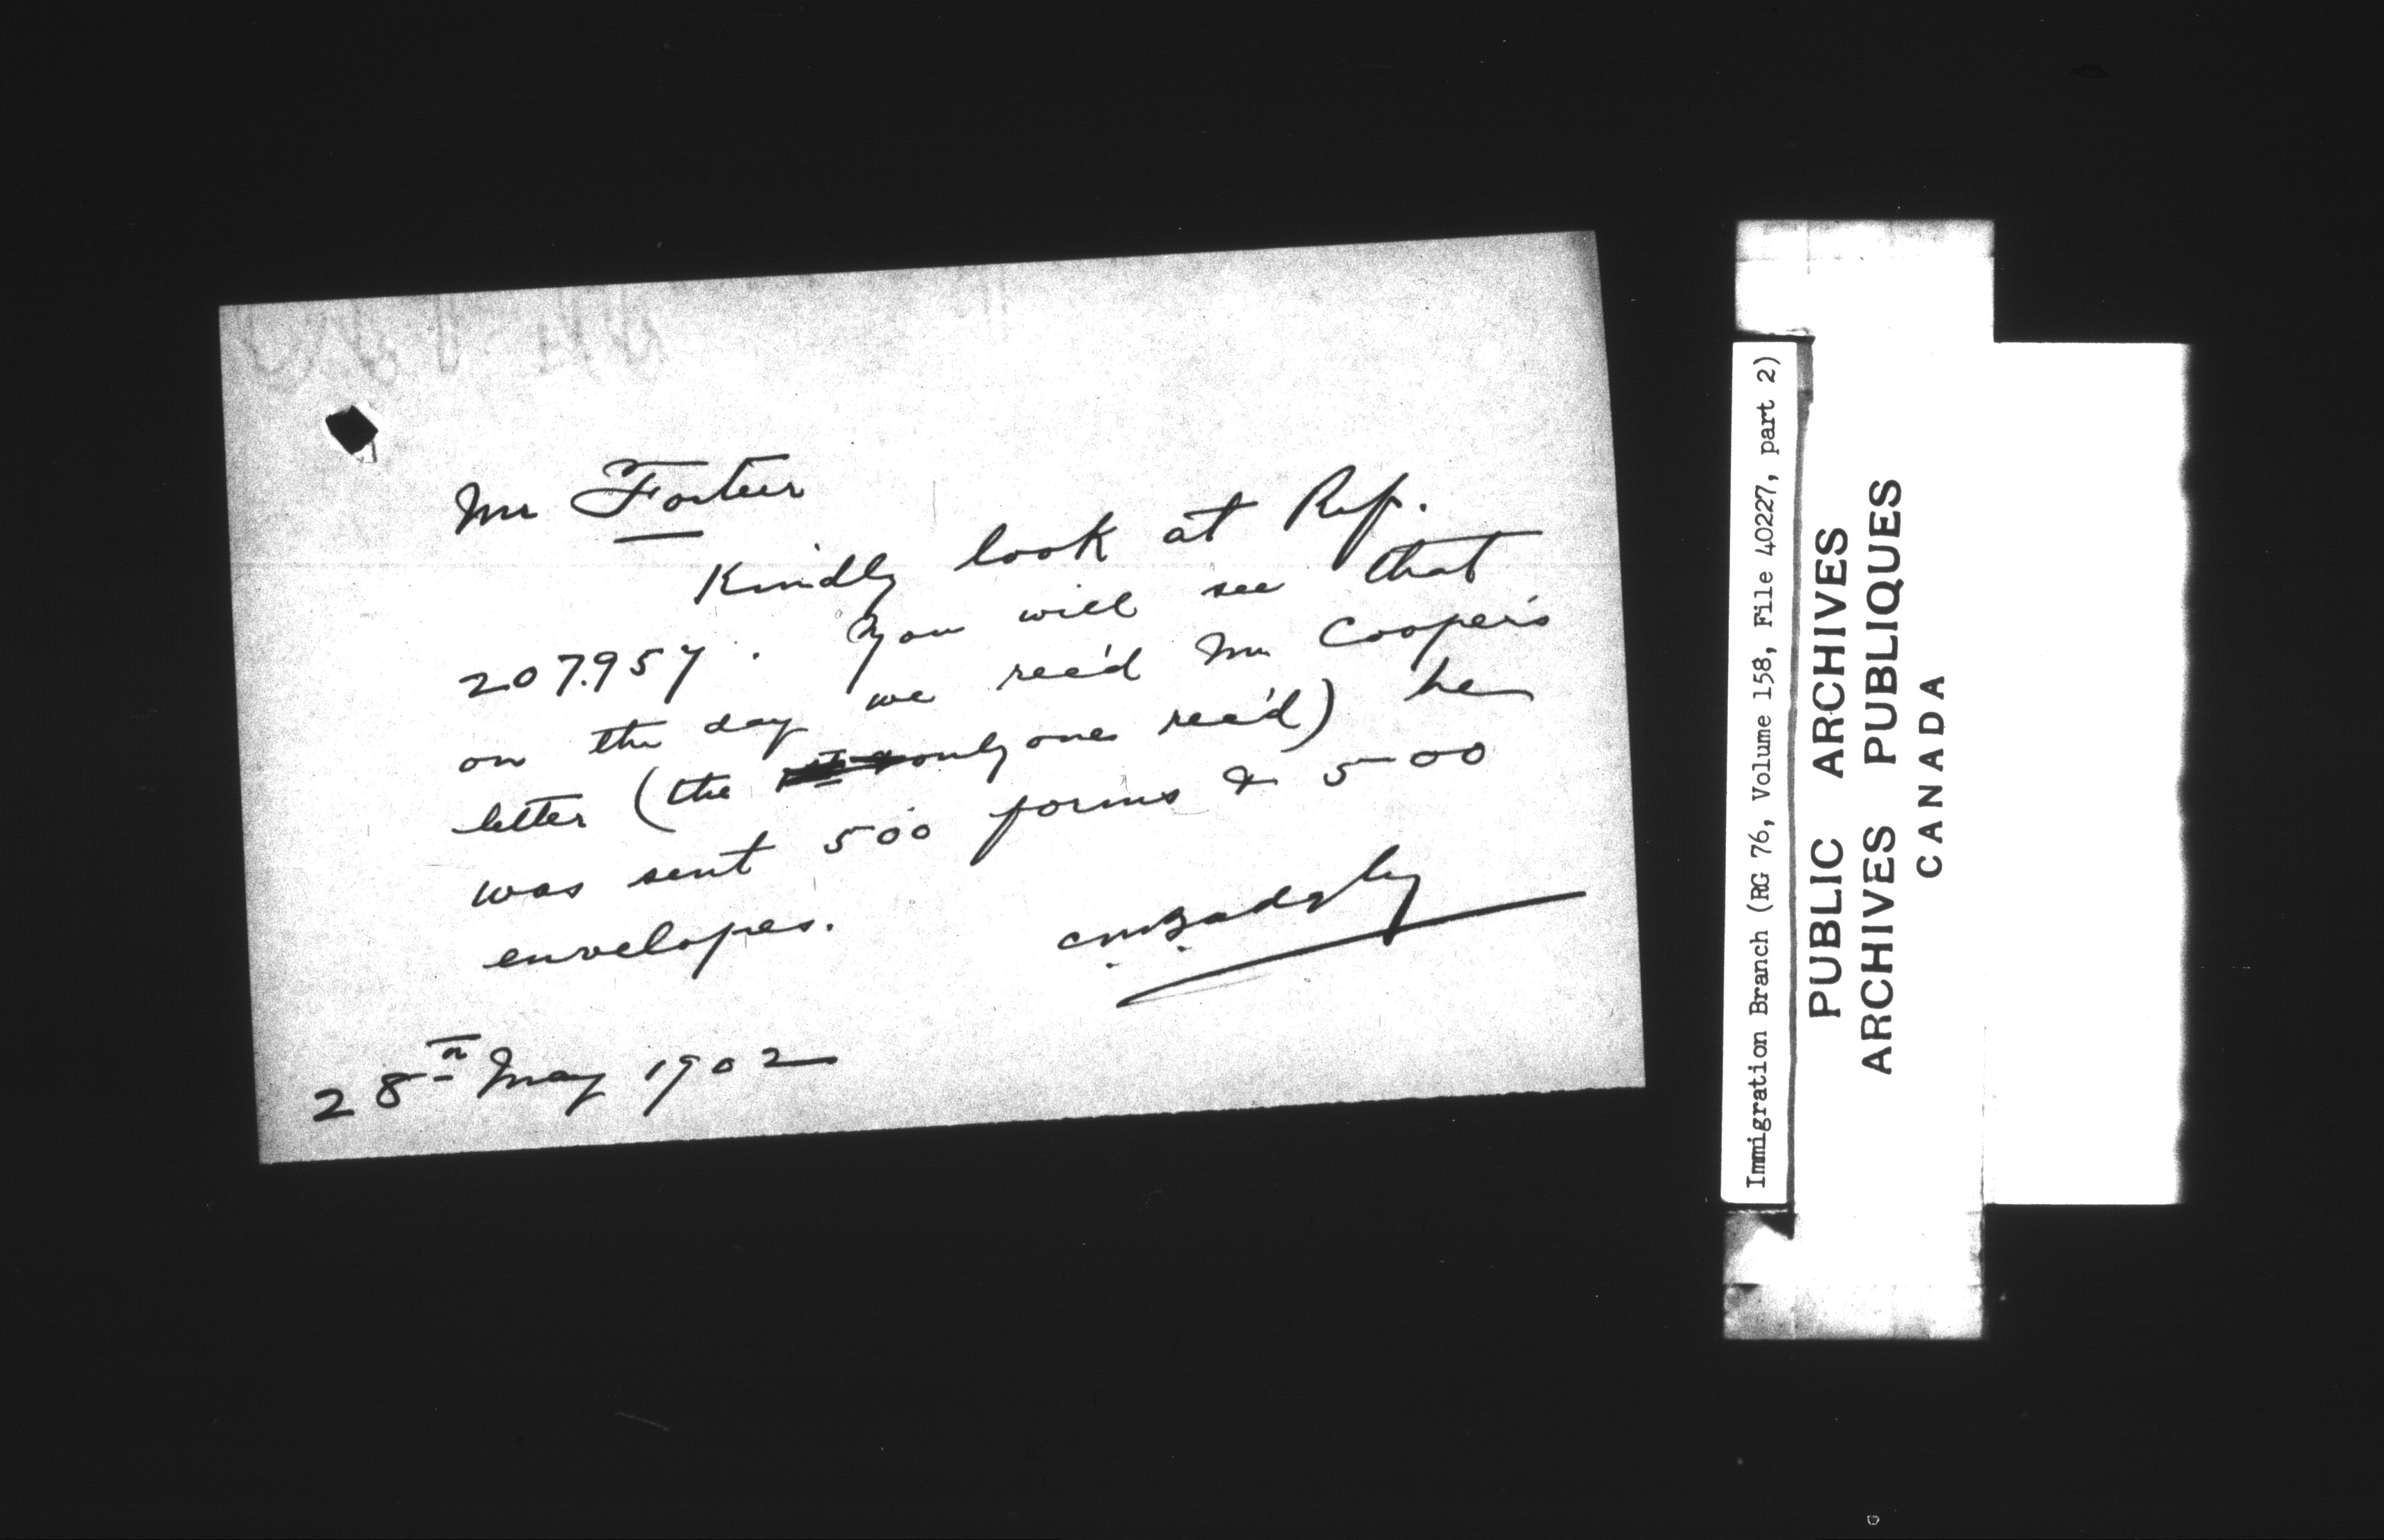 Mr Fortier
Kindly look at Ref.
207.957. You will see that
on the day we rec'd Mr Cooper's
letter (the only one rec'd) he
was sent 500 forms & 500
envelopes.
C.M.Badgley
28th May 1902
Immigration Branch (RG 76, Volume 158, File 40227, part 2)
PUBLIC ARCHIVES
ARCHIVES PUBLIQUES
CANADA